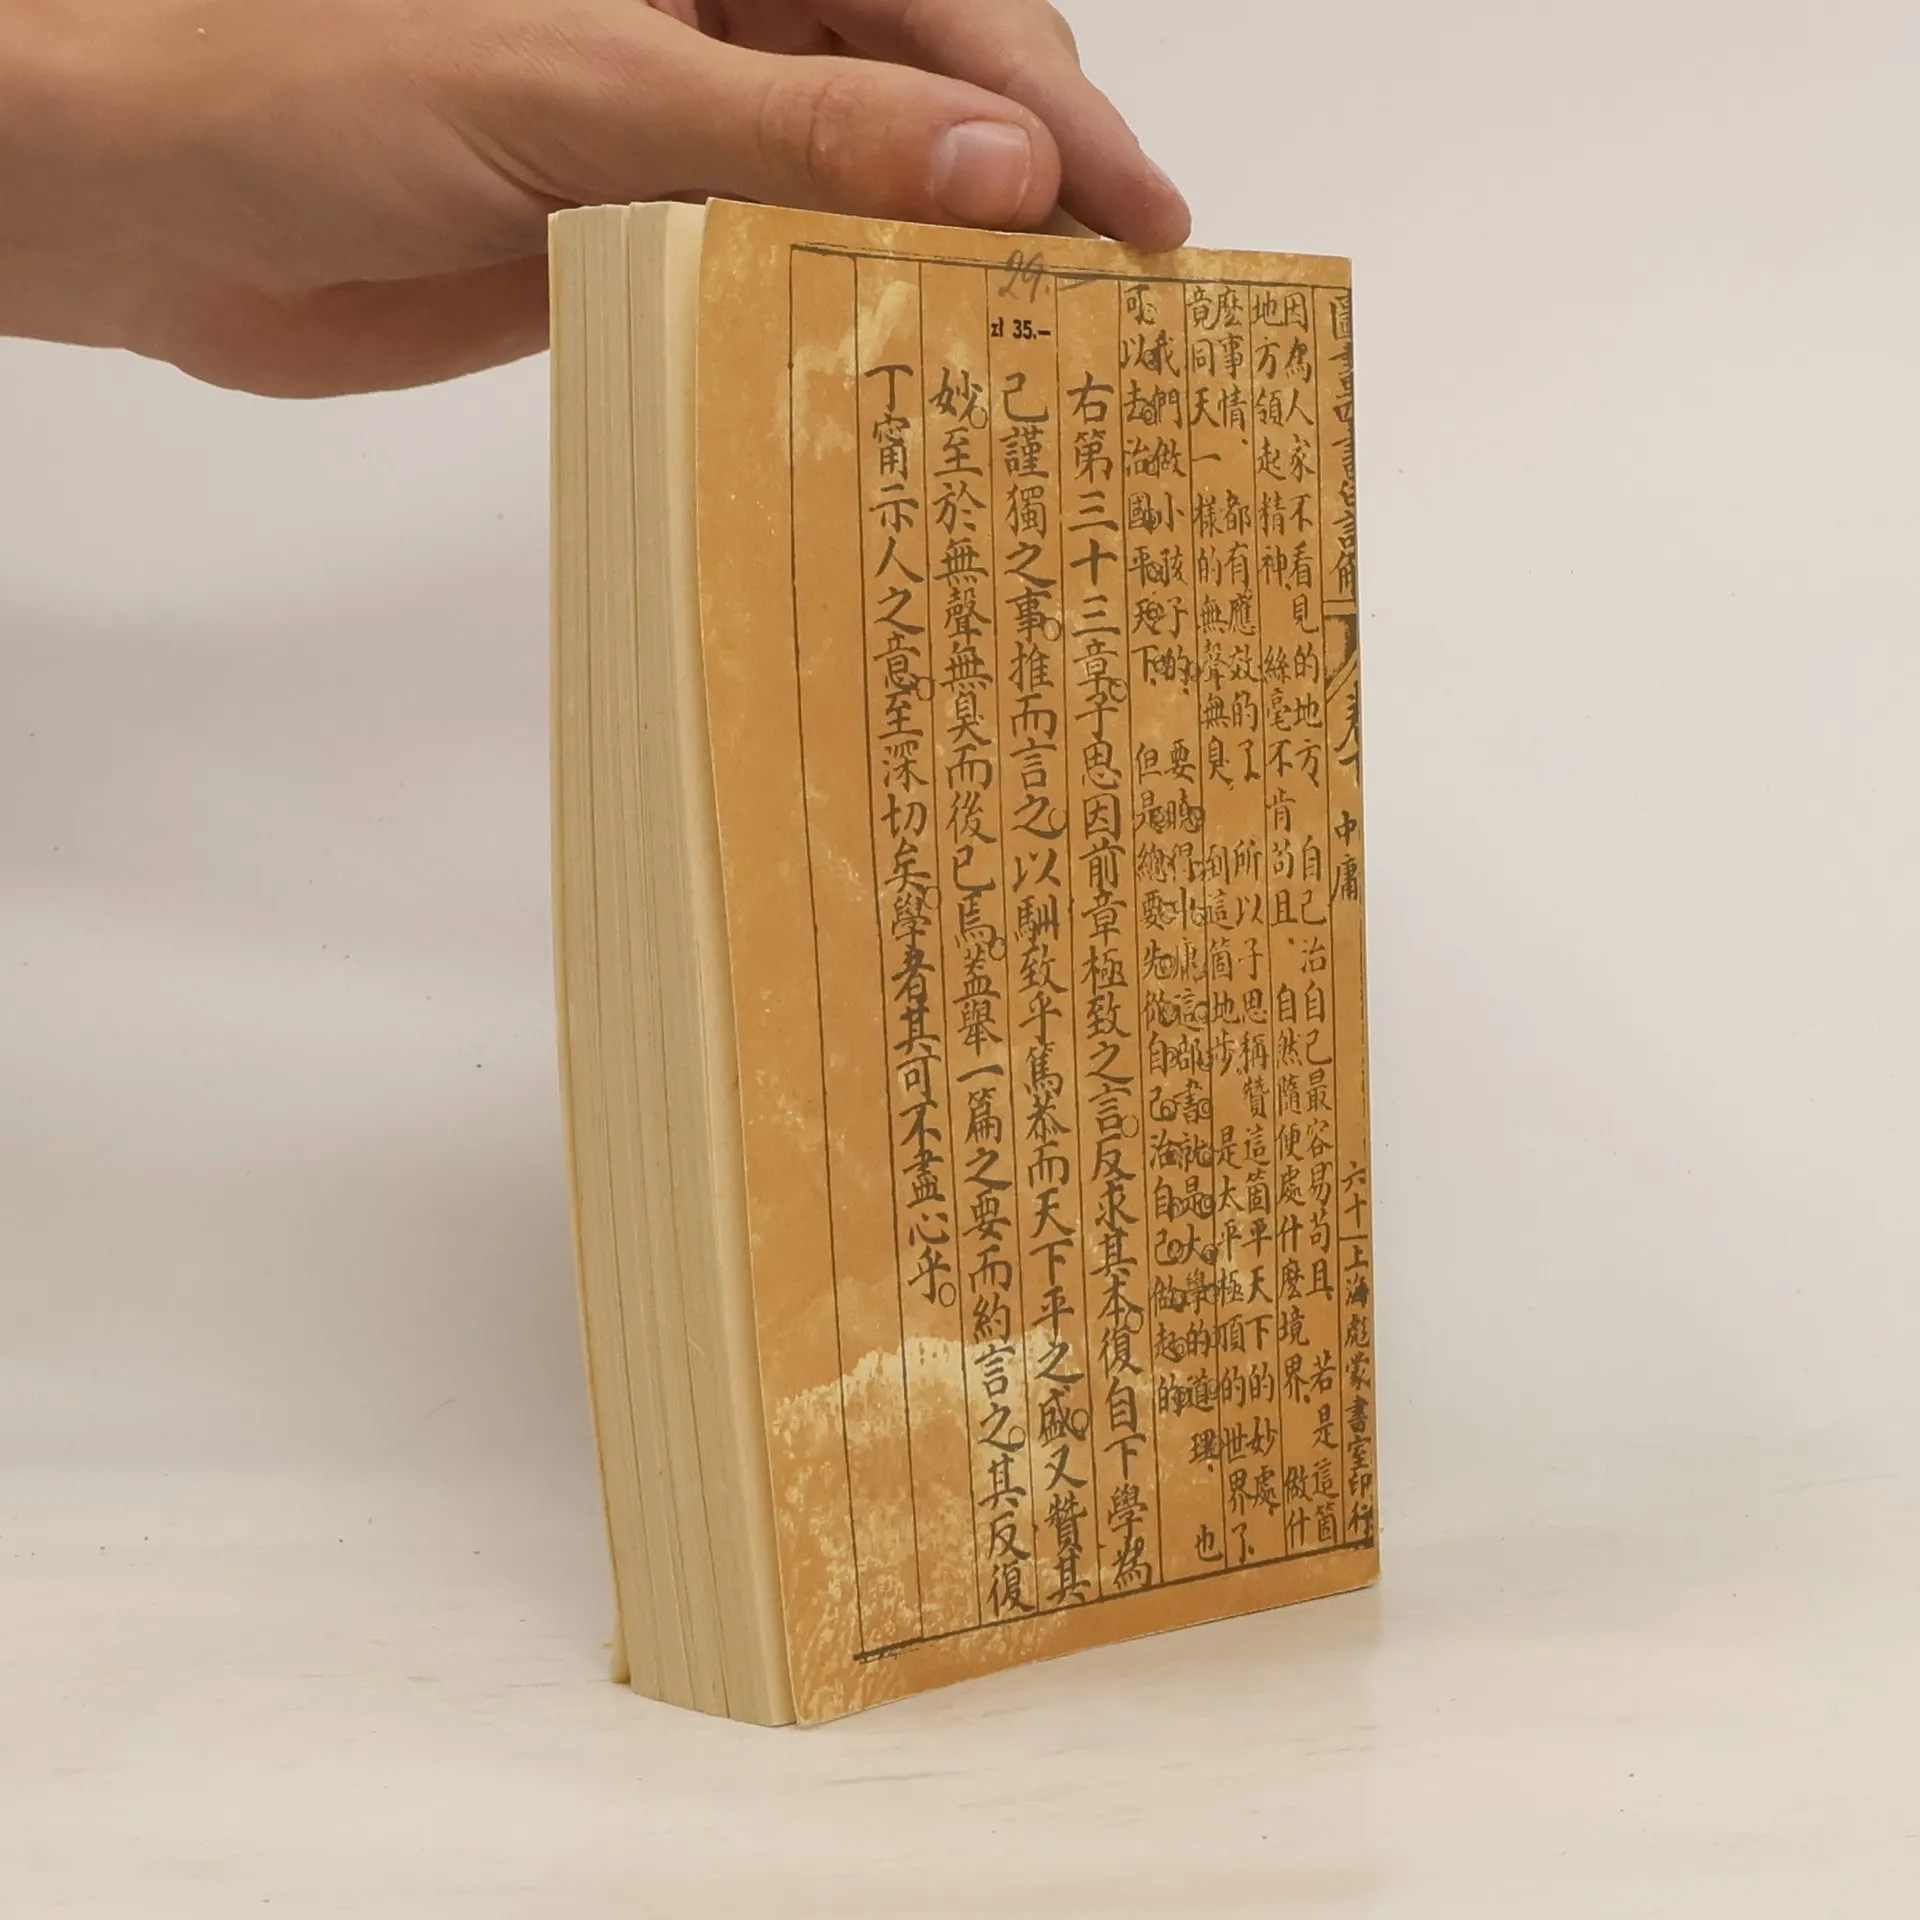 29.
zł 35.—
圖畫四書白話解
卷十 中庸
六十一 上海彪蒙書室印行
因爲人家不看見的地方、自己治自己最容易苟且、若是這箇
地方領起精神、絲毫不肯苟且、自然隨便處什麽境界、做什
麽事情、都有應效的了、所以子思稱贊這箇平天下的妙處、
竟同天一樣的無聲無臭、到這箇地步、是太平極頂的世界了、
我們做小孩子的、要曉得中庸這部書就是大學的道理、也
可以去治國平天下、但是總要先從自己治自己做起的
右第三十三章。子思因前章極致之言。反求其本。復自下學爲
己謹獨之事。推而言之。以馴致乎篤恭而天下平之盛。又贊其
妙。至於無聲無臭而後已焉。蓋舉一篇之要而約言之。其反復
丁甯示人之意。至深切矣。學者其可不盡心乎。